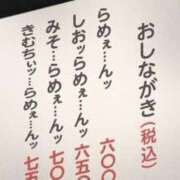 おしながき(税込)
らめぇ…んッ 六〇〇
しおッらめぇ…んッ 六五〇
みそ…らめぇ…んッ 七〇
きむちぃッ…らめぇ…んッ 七五